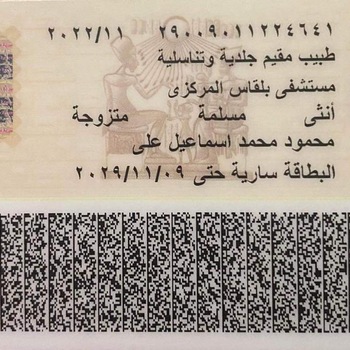 ٢٠٢٢/١١ ٢٩٠٠٩٠١١٢٢٤٦٤١
طبيب مقيم جلدية وتناسلية
مستشفى بلقاس المركزى
أنثى مسلمة متزوجة
محمود محمد اسماعيل على
البطاقة سارية حتى ٢٠٢٩/١١/٠٩